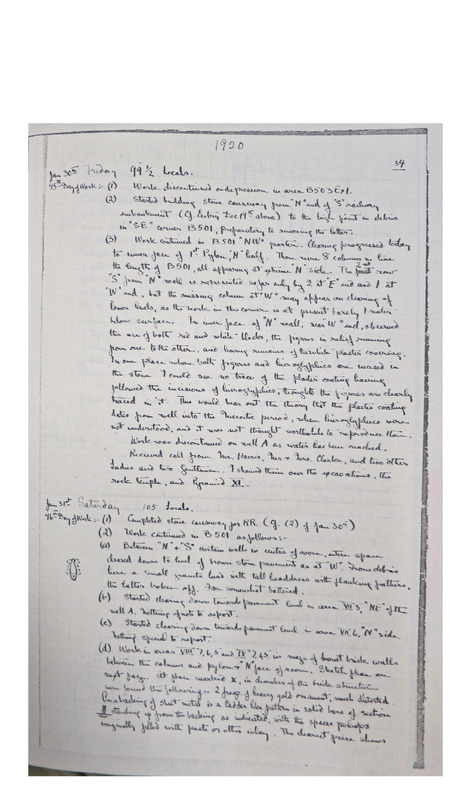 1920
34
Jan 30th Friday 99 1/2 Locals.
45th Day of Work:- (1) Work discontinued on depression in area B503 Ext.
(2) Started building stone causeway from "N" end of "S" railway
embankment (Cf. Debris Dec 19th above) to the high point in debris
in "SE" corner B501, preparatory to removing the latter.
(3) Work continued in B501 "NW" quarter. Clearing progressed today
to inner face of 1st Pylon, "N" half. There were 8 columns in line
the length of B501, all appearing at extreme N side. The 2nd row
"S" from "N" wall is represented so far only by 2 at "E" end and 1 at
"W" end, but the missing column at "W" may appear on clearing of
lower levels, as the work in this corner is at present barely 1 meter
below surface. In inner face of "N" wall, near W end, observed
the use of both red and white blocks, the figures in relief running
from one to the other, and having remains of turquoise plaster covering.
In one place where both figures and hieroglyphics are incised in
the stone I could see no trace of the plaster coating having
followed the incisions of hieroglyphics, though the figures are clearly
traced in it. This would bear out the theory that the plaster coating
dates from well into the Meroitic period, when hieroglyphics were
not understood, and it was not thought worthwhile to reproduce them.
Work was discontinued on well A as water has been reached.
Received call from Mrs. Harris, Mr & Mrs. Clarke, and two other
ladies and two gentlemen. I showed them over the excavations, the
rock temple, and Pyramid XI.
Jan 31st Saturday 105 Locals.
46th Day of Work:- (1) Completed stone causeway for RR. (Cf. (2) of Jan 30th)
(2) Work continued in B501 as follows:-
(a) Between "N" & "S" curtain walls in centre of room, entire space
cleared down to level of brown stone pavement as at "W". From debris
here a small granite head with tall headdress with flanking feathers,
the latter broken off. Face somewhat battered.
(b) Started clearing down towards pavement level in area VII 5, "NE" of the
well A. Nothing of note to report.
(c) Started clearing down towards pavement level in area VII 6, "N" side.
Nothing special to report.
(d) Work in areas VIII 7, 6, 5 and IX 7, 6, 5 in maze of burnt brick walls
between the columns and pylon & N face of room. Sketch plan on
next page. At place marked X, in chamber of the brick structures
were found the following:- 2 frags of heavy gold ornament, much distorted.
On a backing of sheet metal is a ladder like pattern in solid bars of section
standing up from the backing as indicated, with the spaces perhaps
originally filled with paste or other inlay. The clearest piece shows